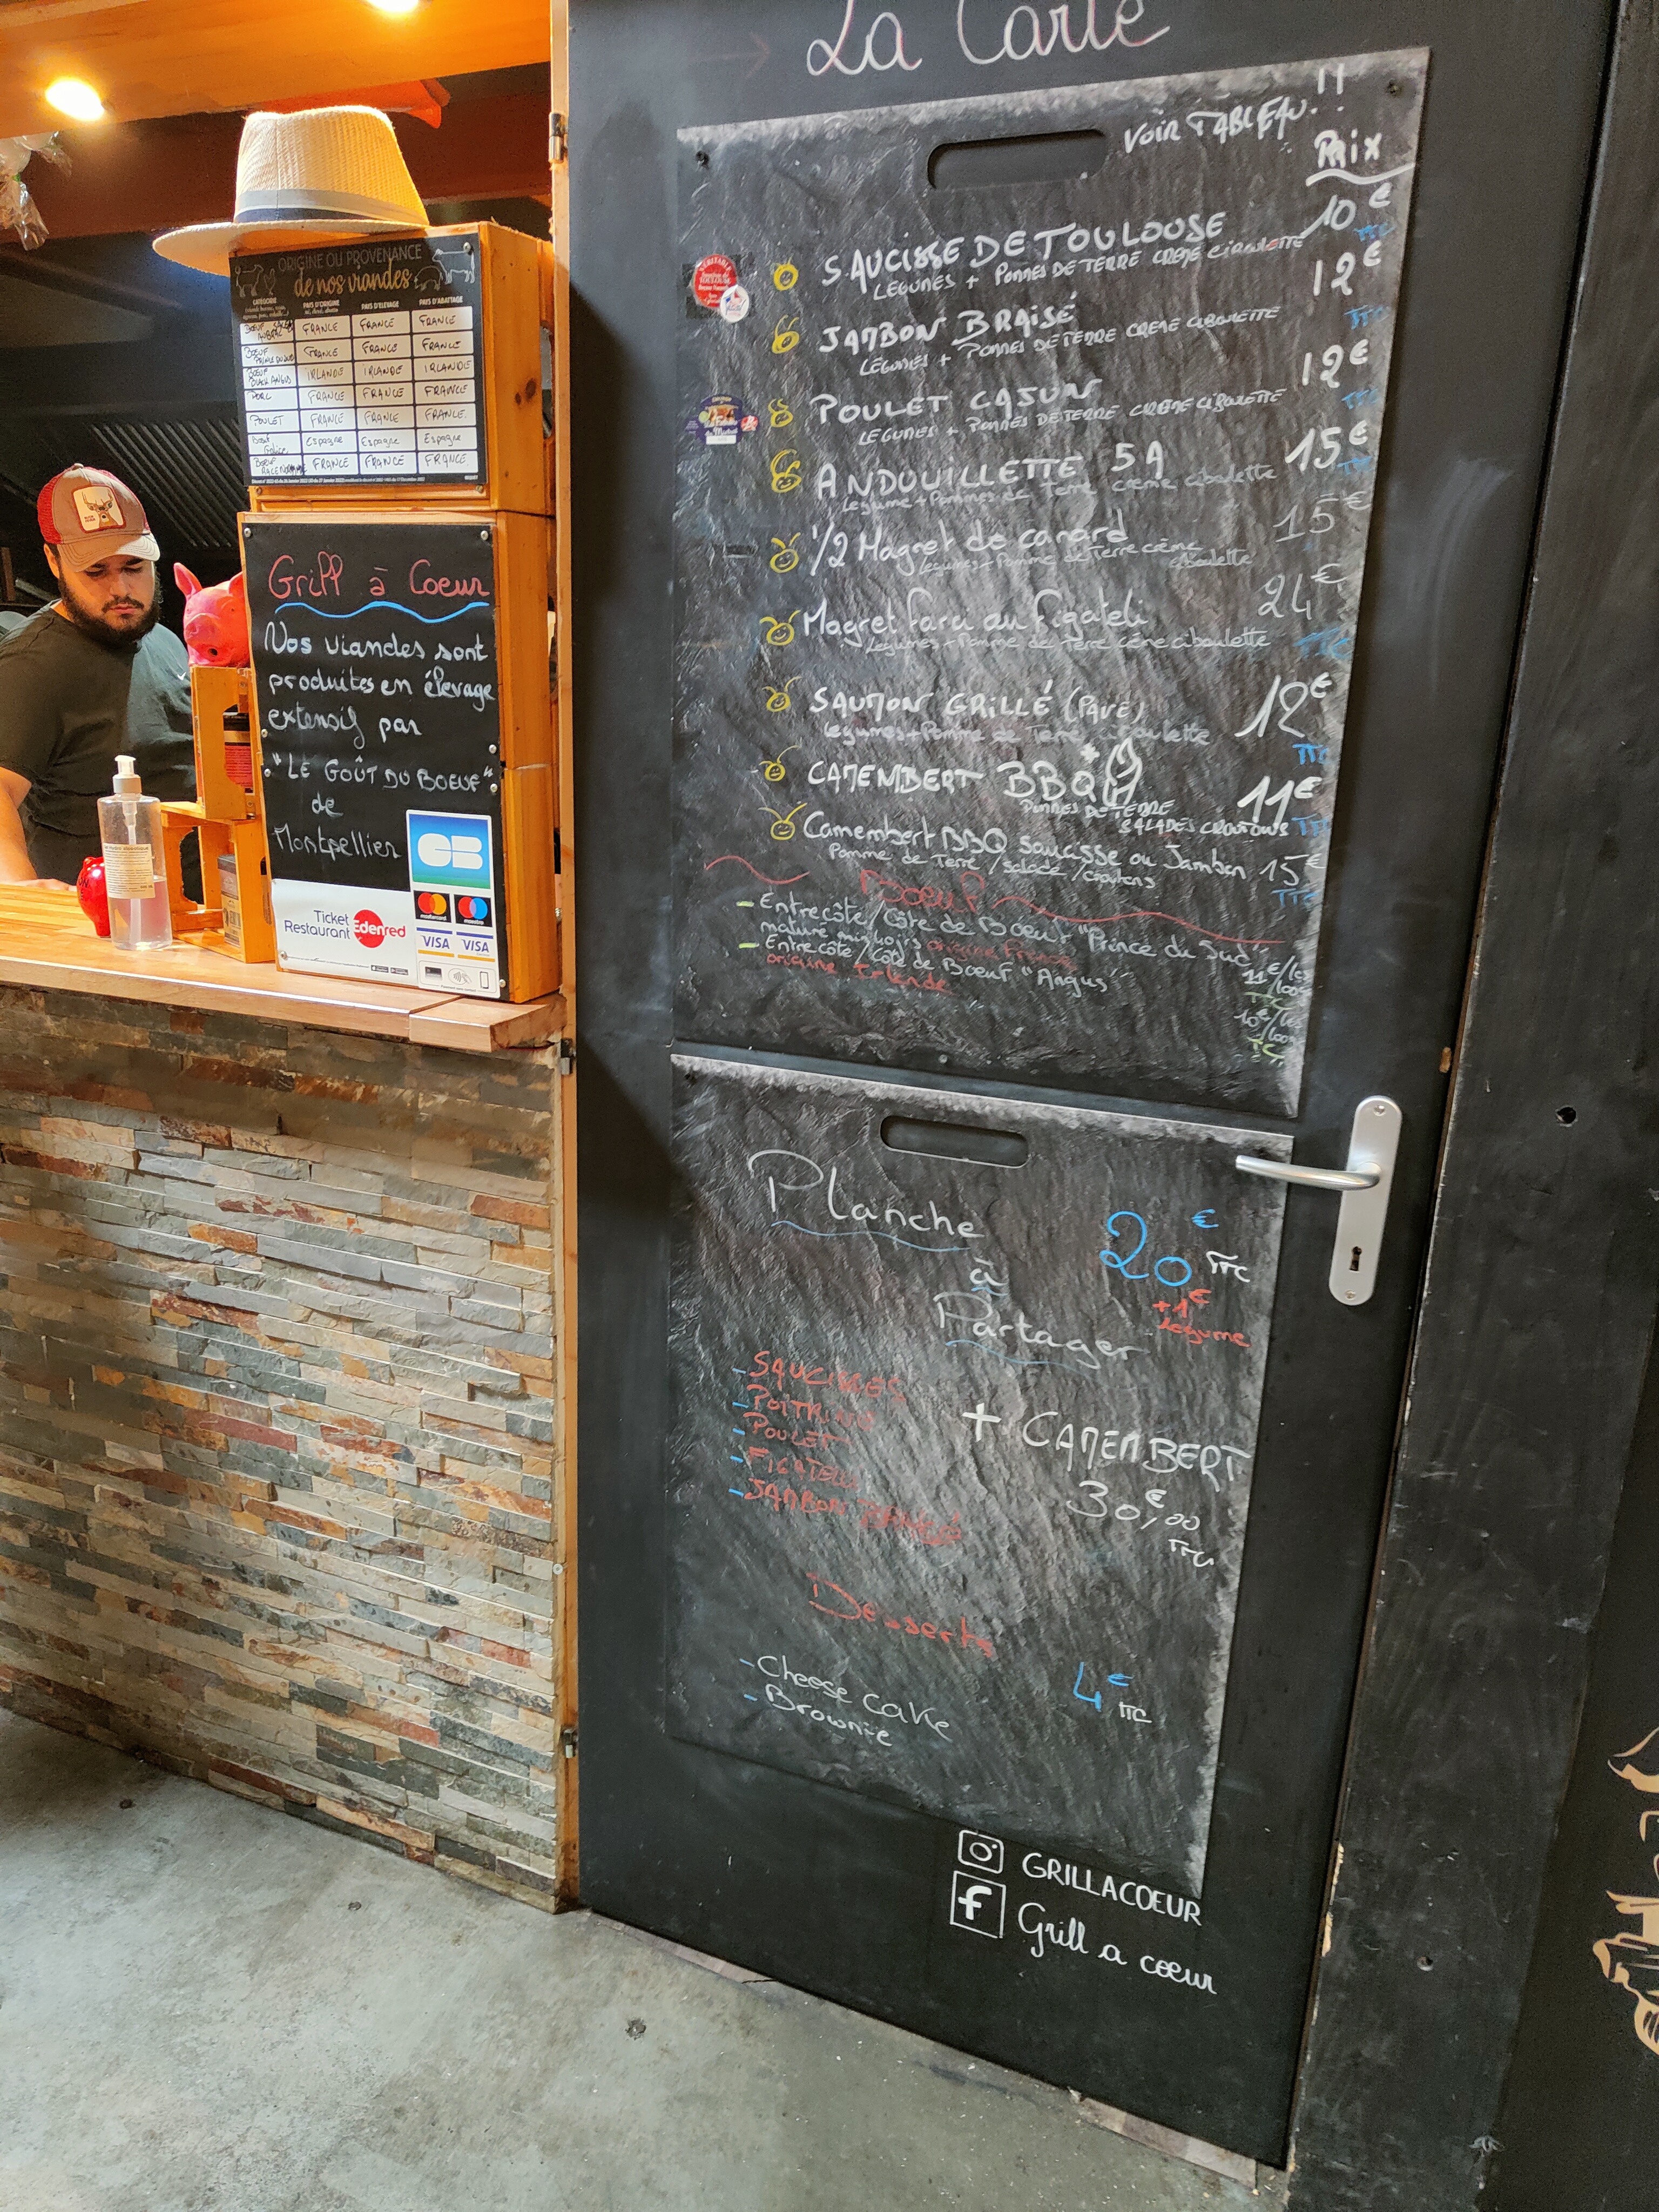 La Carte
VOIR TABLEAU !!
Prix
SAUCISSE DE TOULOUSE 10€
TTC
LEGUMES + POMMES DE TERRE CREME CIBOULETTE
JAMBON BRAISÉ 12€
TTC
LÉGUMES + POMMES DE TERRE CREME CIBOULETTE
POULET CAJUN 12€
TTC
LEGUMES + POMMES DE TERRE CREME CIBOULETTE
ANDOUILLETTE 5A 15€
TTC
Légume + Pommes de Terre crème ciboulette
1/2 Magret de canard 15€
Légumes + Pomme de Terre crème
ciboulette
Magret farci au Figatelli 24€
Légumes + Pomme de Terre crème ciboulette TTC
SAUMON GRILLÉ (PAVÉ) 12€
Légumes + Pomme de Terre ciboulette
TTC
CAMEMBERT BBQ 11€
POMMES DE TERRE
SALADES CROUTONS TTC
Camembert BBQ saucisse ou Jambon 15€
Pomme de Terre / salade / croutons
TTC
Boeuf
- Entrecôte / Côte de Boeuf "Prince du Sud"
origine France
11€/les
100g
- Entrecôte / Côte de Boeuf "Angus"
origine Irlande
10€/les
100g
Planche
à
Partager
20€ TTC
+1€
Légume
- SAUCISSES
- POITRINE
- POULET
- FIGATELLI
- JAMBON BRAISÉ
+ CAMEMBERT
30,€00
TTC
Desserts
- Cheese cake
- Brownie
4€ TTC
GRILLACOEUR
Grill a coeur
ORIGINE OU PROVENANCE
de nos viandes
CATÉGORIE PAYS D'ORIGINE PAYS D'ELEVAGE PAYS D'ABATTAGE
BOEUF FRANCE FRANCE FRANCE
BOEUF PRINCE DU SUD FRANCE FRANCE FRANCE
BOEUF BLACK ANGUS IRLANDE IRLANDE IRLANDE
PORC FRANCE FRANCE FRANCE
POULET FRANCE FRANCE FRANCE
Boeuf Galice Espagne Espagne Espagne
BOEUF FRANCE FRANCE FRANCE
Grill à Coeur
Nos viandes sont
produites en élevage
extensif par
"LE GOÛT DU BOEUF"
de
Montpellier
CB
Ticket
Restaurant
Edenred
mastercard
maestro
VISA VISA